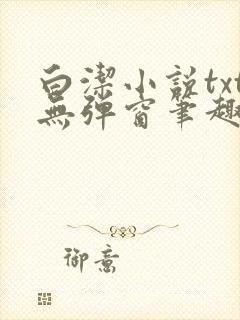 白潔小説txt
無彈窗筆趣
御意